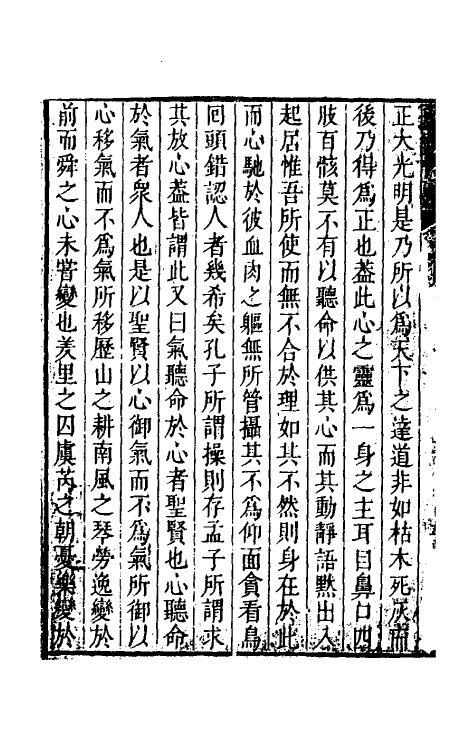 正大光明是乃所以為天下之達道非如枯木死灰而
後乃得為正也蓋此心之靈為一身之主耳目鼻口四
肢百骸莫不有以聽命以供其心而其動靜語默出入
起居惟吾所使而無不合於理如其不然則身在於此
而心馳於彼血肉之軀無所管攝其不為仰面貪看鳥
回頭錯認人者幾希矣孔子所謂操則存孟子所謂求
其放心蓋皆謂此又曰氣聽命於心者聖賢也心聽命
於氣者衆人也是以聖賢以心御氣而不為氣所御以
心移氣而不為氣所移歷山之耕南風之琴勞逸變於
前而舜之心未甞變也羑里之囚虞芮之朝憂樂變於